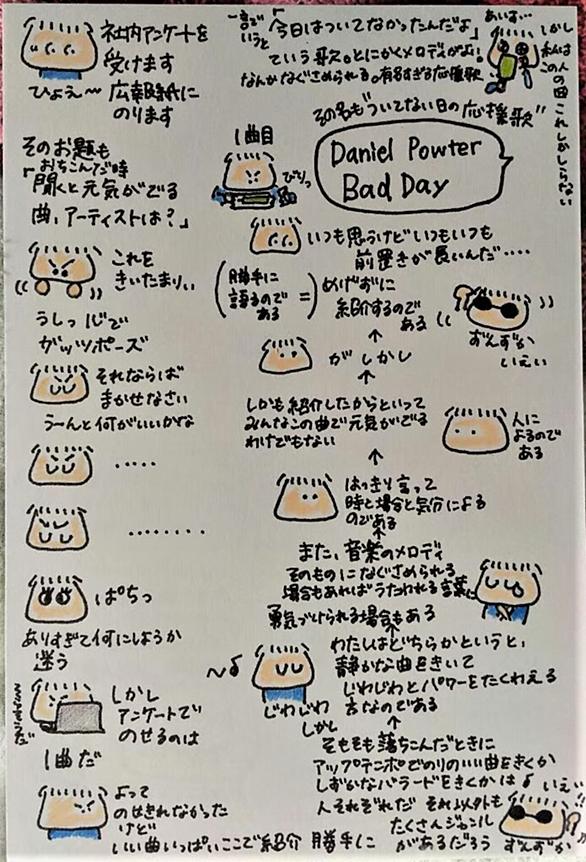 社内アンケートを
受けます
ひょえ〜 広報誌に
のります
そのお題も
「おちこんだ時
聞くと元気がでる
曲、アーティストは？」
これを
きいたまりい
うしっ心で
ガッツポーズ
それならば
まかせなさい
うーんと何がいいかな
‥‥‥
‥‥‥‥
ぱちっ
ありすぎて何にしようか
迷う
しかし
アンケートで
のせるのは
1曲だ
よって
のせきれなかった
けど
いい曲いっぱいここで紹介 勝手に
そもそも落ちこんだときに
アップテンポでのりのいい曲をきくか
しずかなバラードをきくかは
人それぞれだ それ以外も
たくさんジャンル
があるだろう
いえい
ずんずか
↑
しかし
わたしはどちらかというと、
静かな曲をきいて
じわじわとパワーをたくわえる
方なのである
じわじわ
↑
また、音楽のメロディ
そのものになぐさめられる
場合もあればうたわれる言葉に
勇気づけられる場合もある
↑
はっきり言って
時と場合と気分による
のである
↑
しかも紹介したからといって
みんなこの曲で元気がでる
わけでもない
人に
よるので
ある
↑
がしかし
↑
めげずに
紹介するので
ある
=
(勝手に
語るので
ある)
ずんずか
いえい
いつも思うけどいつもいつも
前置きが長いんだ‥‥
1曲目
びりっ
Daniel Powter
Bad Day
その名も"ついてない日の応援歌"
一言で
いうと
「今日はついてなかったんだよ」
ていう歌。とにかくメロディがよい
なんかなぐさめられる。有名すぎる応援歌
あいす‥
しかし
私は
この人
の曲これしかしらない